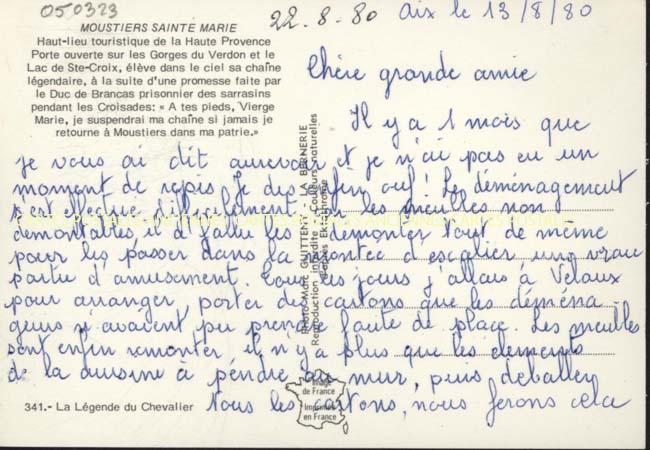 050323
22.8.80
Aix le 13/8/80
MOUSTIERS SAINTE MARIE
Haut-lieu touristique de la Haute Provence
Porte ouverte sur les Gorges du Verdon et le
Lac de Ste-Croix, élève dans le ciel sa chaîne
légendaire, à la suite d'une promesse faite par
le Duc de Brancas prisonnier des sarrasins
pendant les Croisades: « A tes pieds, Vierge
Marie, je suspendrai ma chaîne si jamais je
retourne à Moustiers dans ma patrie.»
Chère grande amie
Il y a 1 mois que
je vous ai dit aurevoir et je n'ai pas eu un
moment de repis. Je dis enfin ouf! Le déménagement
s'est effectué difficilement car les meubles non
démontables, il a fallu les démonter tout de même
pour les passer dans la montée d'escalier une vraie
partie d'amusement. Tous les jours j'allais à Velaux
pour arranger, porter des cartons que les déména-
geurs n'avaient pu prendre faute de place. Les meubles
sont enfin remonter, il n'y a plus que les elements
de la cuisine à pendre au mur, puis deballer
tous les cartons, nous ferons cela
341.- La Légende du Chevalier
Photo-Marc GUITTENY - LA BERNERIE
Reproduction interdite - Couleurs naturelles
d'après Ektachrome
Image
de France
Imprimé
en France